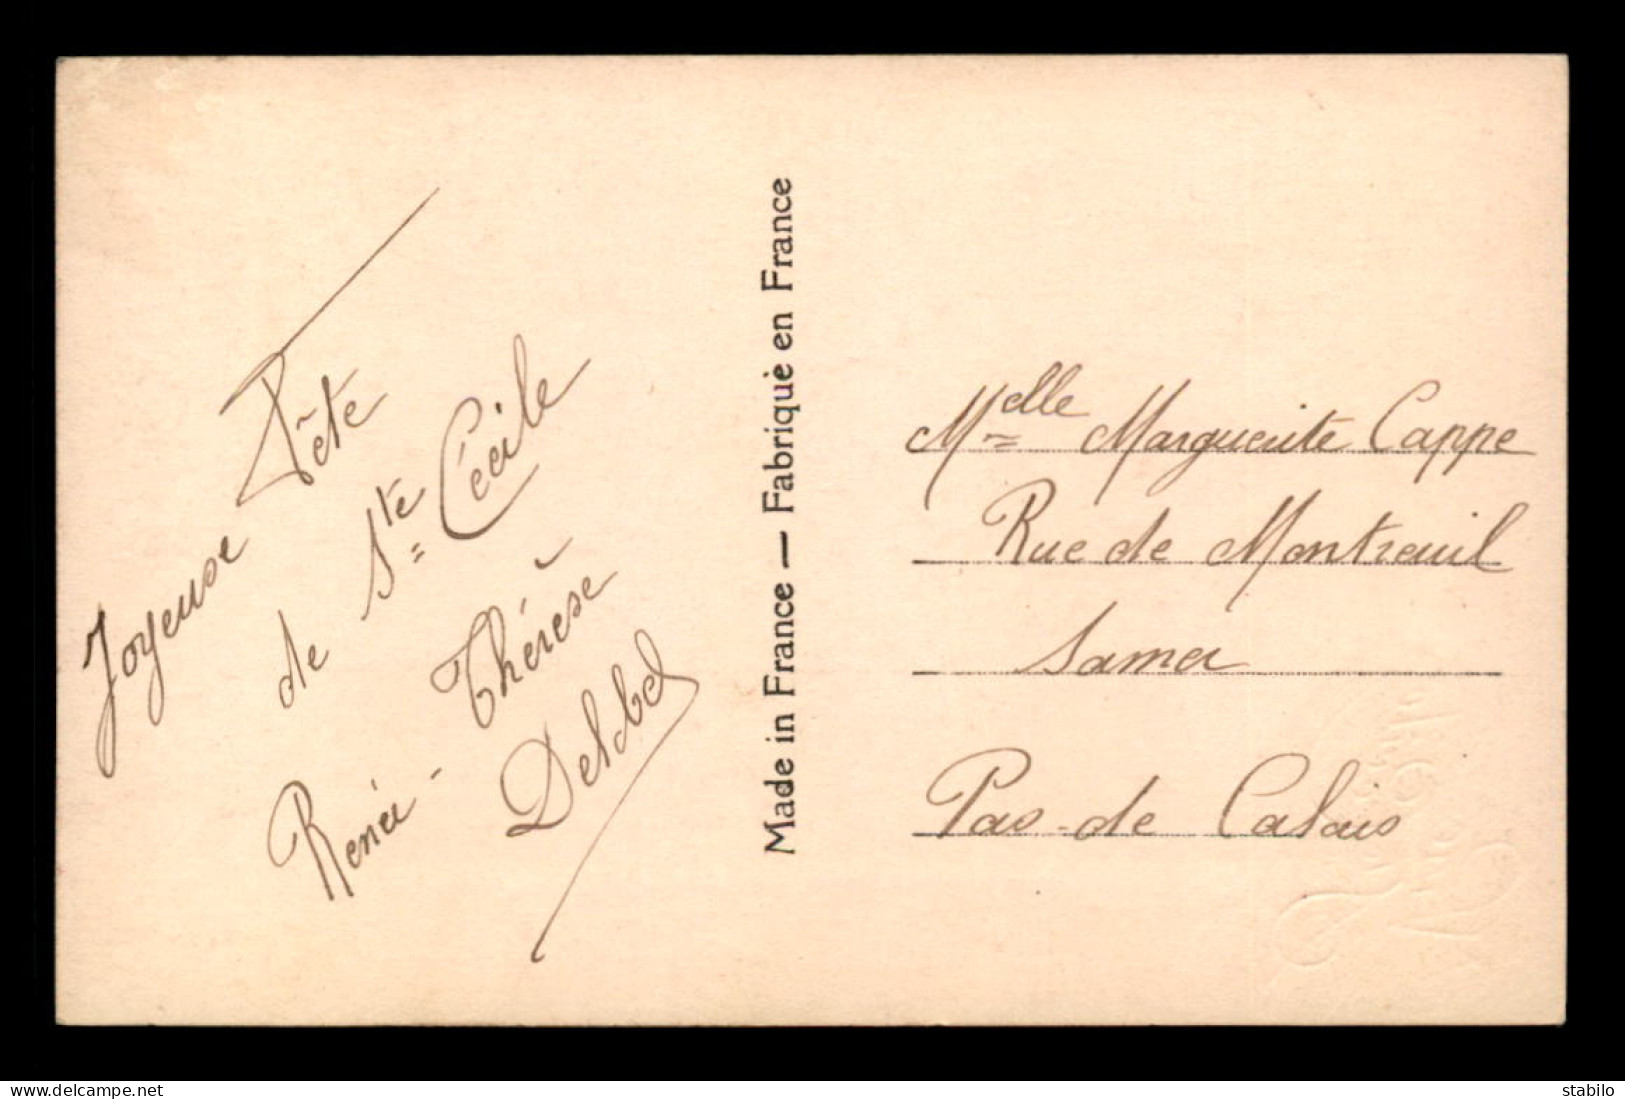 Joyeuse Fête
de Ste Cécile
Renée - Thérèse
Made in France — Fabriqué en France
Melle Marguerite Cappe
Rue de Montreuil
Samer
Pas-de Calais
www.delcampe.net
stabilo